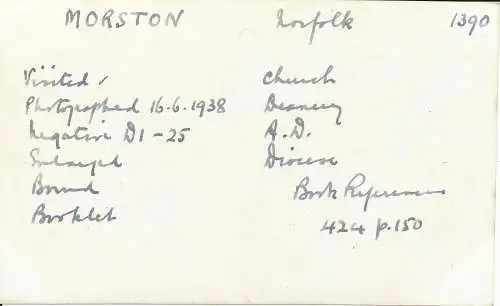 MORSTON Norfolk 1390
Visited ✓ Church
Photographed 16.6.1938 Deanery
Negative D1-25 A.D.
Enlarged Diocese
Bound Book References
Booklet 424 p.150